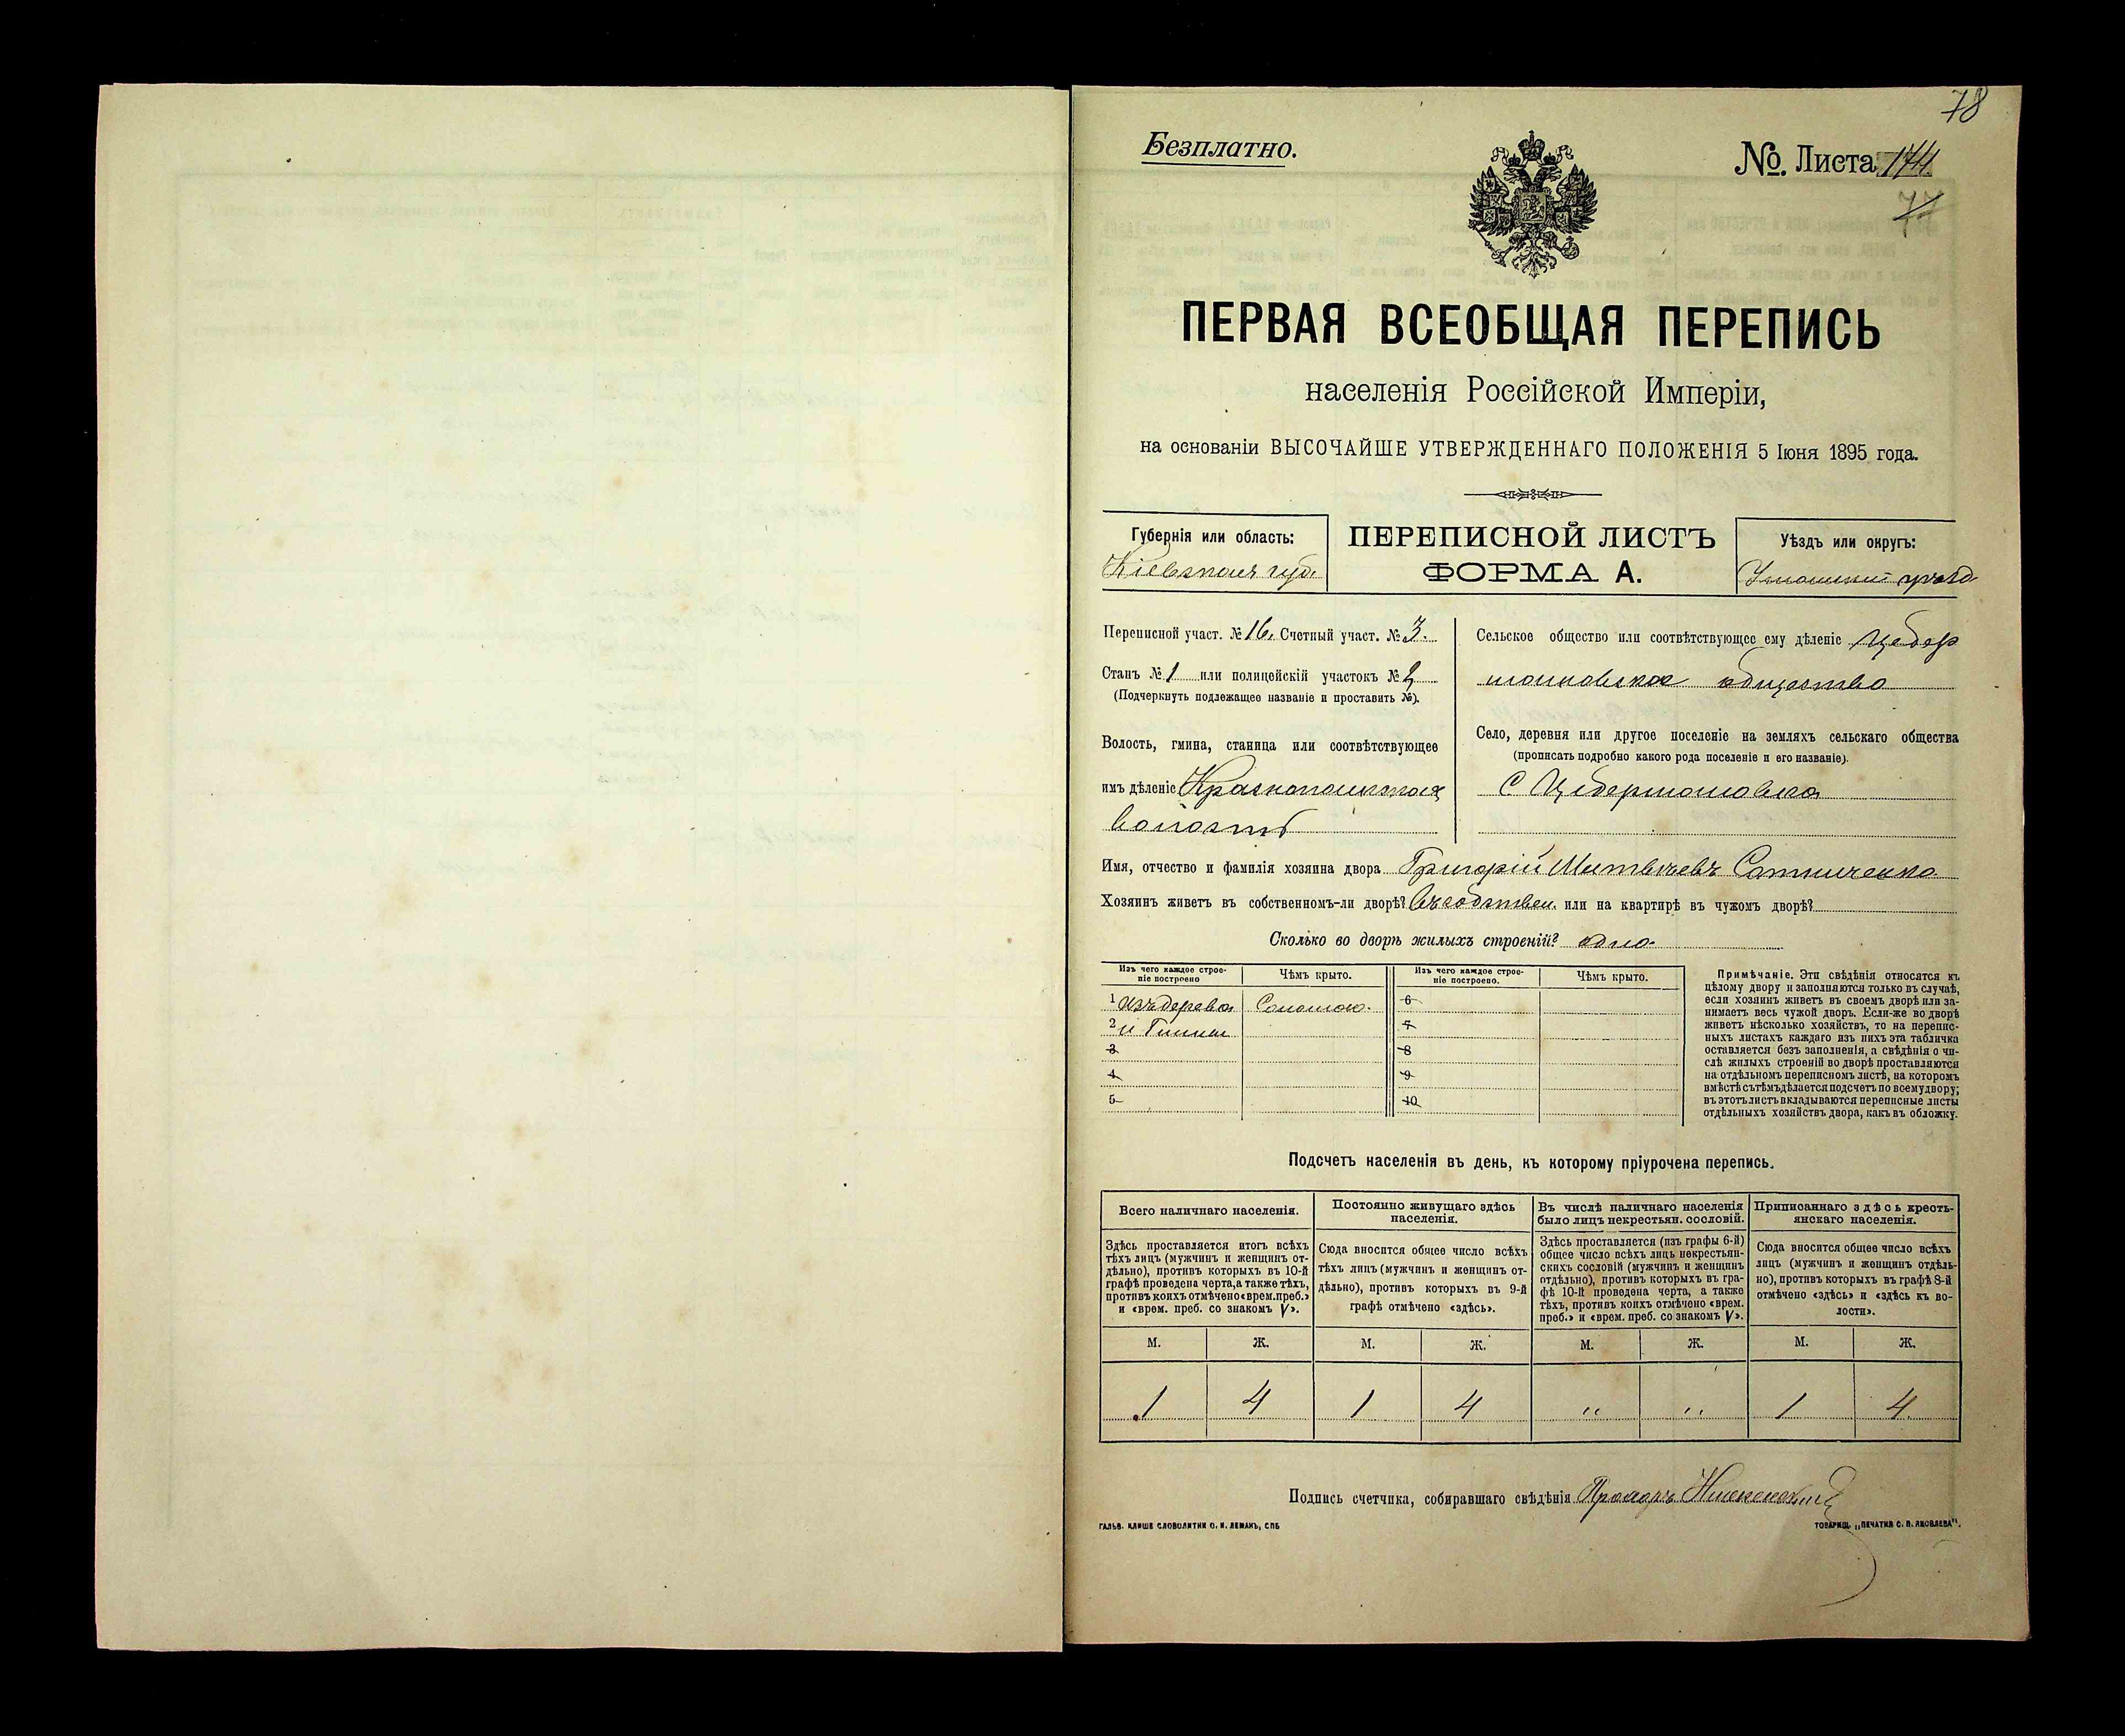 78
Безплатно.
№. Листа 174.
77
ПЕРВАЯ ВСЕОБЩАЯ ПЕРЕПИСЬ
населенія Россійской Имперіи,
на основаніи ВЫСОЧАЙШЕ УТВЕРЖДЕННАГО ПОЛОЖЕНІЯ 5 Іюня 1895 года.
Губернія или область:
Кіевская губ.
ПЕРЕПИСНОЙ ЛИСТЪ
ФОРМА А.
Уѣздъ или округъ:
Уманскій уѣзд
Переписной участ. № 16. Счетный участ. № 3.
Станъ № 1 или полицейскій участокъ № 2
(Подчеркнуть подлежащее названіе и проставить №).
Волость, гмина, станица или соотвѣтствующее
имъ дѣленіе Краснопольская
волость
Сельское общество или соотвѣтствующее ему дѣленіе Цебер
мановское общество
Село, деревня или другое поселеніе на земляхъ сельскаго общества
(прописать подробно какого рода поселеніе и его названіе).
С Цебермановка
Имя, отчество и фамилія хозяина двора Григорій Матвѣевъ Сотниченко
Хозяинъ живетъ въ собственномъ-ли дворѣ? въ собствен. или на квартирѣ въ чужомъ дворѣ?
Сколько во дворѣ жилыхъ строеній? одно
Изъ чего каждое строе-
ніе построено
Чѣмъ крыто.
Изъ чего каждое строе-
ніе построено.
Чѣмъ крыто.
1 Изъ дерева Соломою. 6
2 и Глины 7
3 8
4 9
5 10
Примѣчаніе. Эти свѣдѣнія относятся къ
цѣлому двору и заполняются только въ случаѣ,
если хозяинъ живетъ въ своемъ дворѣ или за-
нимаетъ весь чужой дворъ. Если-же во дворѣ
живетъ нѣсколько хозяйствъ, то на перепис-
ныхъ листахъ каждаго изъ нихъ эта табличка
оставляется безъ заполненія, а свѣдѣнія о чи-
слѣ жилыхъ строеній во дворѣ проставляются
на отдѣльномъ переписномъ листѣ, на которомъ
вмѣстѣ съ тѣмъ дѣлается подсчетъ по всему двору;
въ этотъ листъ вкладываются переписные листы
отдѣльныхъ хозяйствъ двора, какъ въ обложку.
Подсчетъ населенія въ день, къ которому пріурочена перепись.
Всего наличнаго населенія.
Постоянно живущаго здѣсь
населенія.
Въ числѣ наличнаго населенія
было лицъ некрестьян. сословій.
Приписаннаго здѣсь кресть-
янскаго населенія.
Здѣсь проставляется итогъ всѣхъ
тѣхъ лицъ (мужчинъ и женщинъ от-
дѣльно), противъ которыхъ въ 10-й
графѣ проведена черта, а также тѣхъ,
противъ коихъ отмѣчено «врем. преб.»
и «врем. преб. со знакомъ V».
Сюда вносится общее число всѣхъ
тѣхъ лицъ (мужчинъ и женщинъ от-
дѣльно), противъ которыхъ въ 9-й
графѣ отмѣчено «здѣсь».
Здѣсь проставляется (изъ графы 6-й)
общее число всѣхъ лицъ некрестьян-
скихъ сословій (мужчинъ и женщинъ
отдѣльно), противъ которыхъ въ гра-
фѣ 10-й проведена черта, а также
тѣхъ, противъ коихъ отмѣчено «врем.
преб.» и «врем. преб. со знакомъ V».
Сюда вносится общее число всѣхъ
лицъ (мужчинъ и женщинъ отдѣль-
но), противъ которыхъ въ графѣ 8-й
отмѣчено «здѣсь» и «здѣсь къ во-
лости».
М. Ж. М. Ж. М. Ж. М. Ж.
1 4 1 4 " " 1 4
Подпись счетчика, собиравшаго свѣдѣнія Прохоръ
ГАЛЬВ. КЛИШЕ СЛОВОЛИТНИ О. И. ЛЕМАНЪ, СПБ
ТОВАРИЩ. „ПЕЧАТНЯ С. П. ЯКОВЛЕВА“.